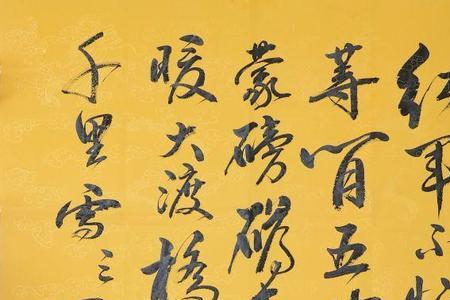 红军不怕
等闲五
蒙磅礴
暖大渡橋
千里雪三